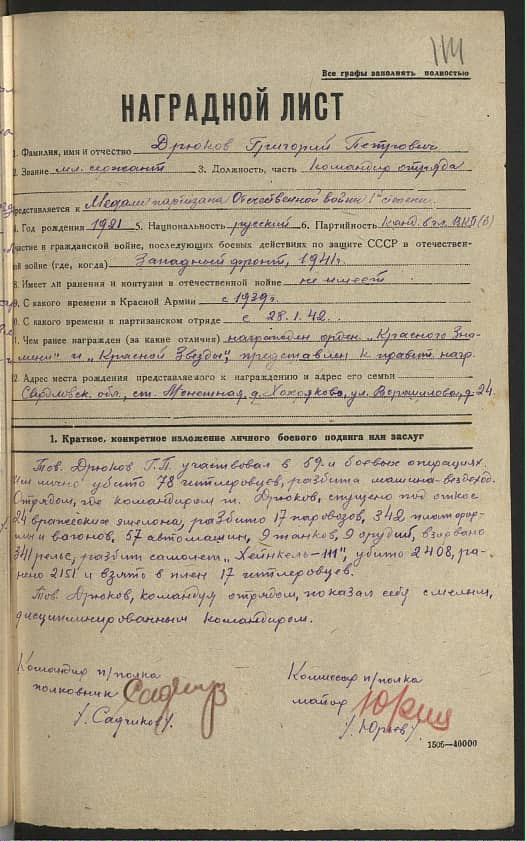 111
Все графы заполнять полностью
НАГРАДНОЙ ЛИСТ
1. Фамилия, имя и отчество Дрюков Григорий Петрович
2. Звание мл. сержант 3. Должность, часть Командир отряда
Представляется к Медали партизана Отечественной войны 1 степени
4. Год рождения 1921 5. Национальность русский 6. Партийность Канд. в чл. ВКП(в)
Участие в гражданской войне, последующих боевых действиях по защите СССР в отечествен-
ной войне (где, когда) Западный фронт, 1941г.
8. Имеет ли ранения и контузии в отечественной войне не имеет
С какого времени в Красной Армии с 1939г.
0. С какого времени в партизанском отряде с 28.1.42.
1. Чем ранее награжден (за какие отличия) награжден орден. „Красного Зна-
мени" и „Красной Звезды", представлен к правит. нагр.
2. Адрес места рождения представляемого к награждению и адрес его семьи
Свердловск. обл., ст. д. Хохряково, ул. Ворошилова, д. 24.
1. Краткое, конкретное изложение личного боевого подвига или заслуг
Тов. Дрюков Г.П. участвовал в 59-и боевых операциях.
Им лично убито 78 гитлеровцев, разбита машина-вездеход.
Отрядом, где командиром т. Дрюков, спущено под откос
24 вражеских эшелона, разбито 17 паровозов, 342 платфор-
мы и вагонов, 57 автомашин, 9 танков, 9 орудий, взорвано
341 рельс, разбит самолет „Хейнкель-111", убито 2408, ра-
нено 2151 и взято в плен 17 гитлеровцев.
Тов. Дрюков, командуя отрядом, показал себя смелым,
дисциплинированным командиром.
Командир п/полка
полковник Садчик
/Садчиков/.
Комиссар п/полка
майор Юрьев
/Юрьев/.
1505—40000